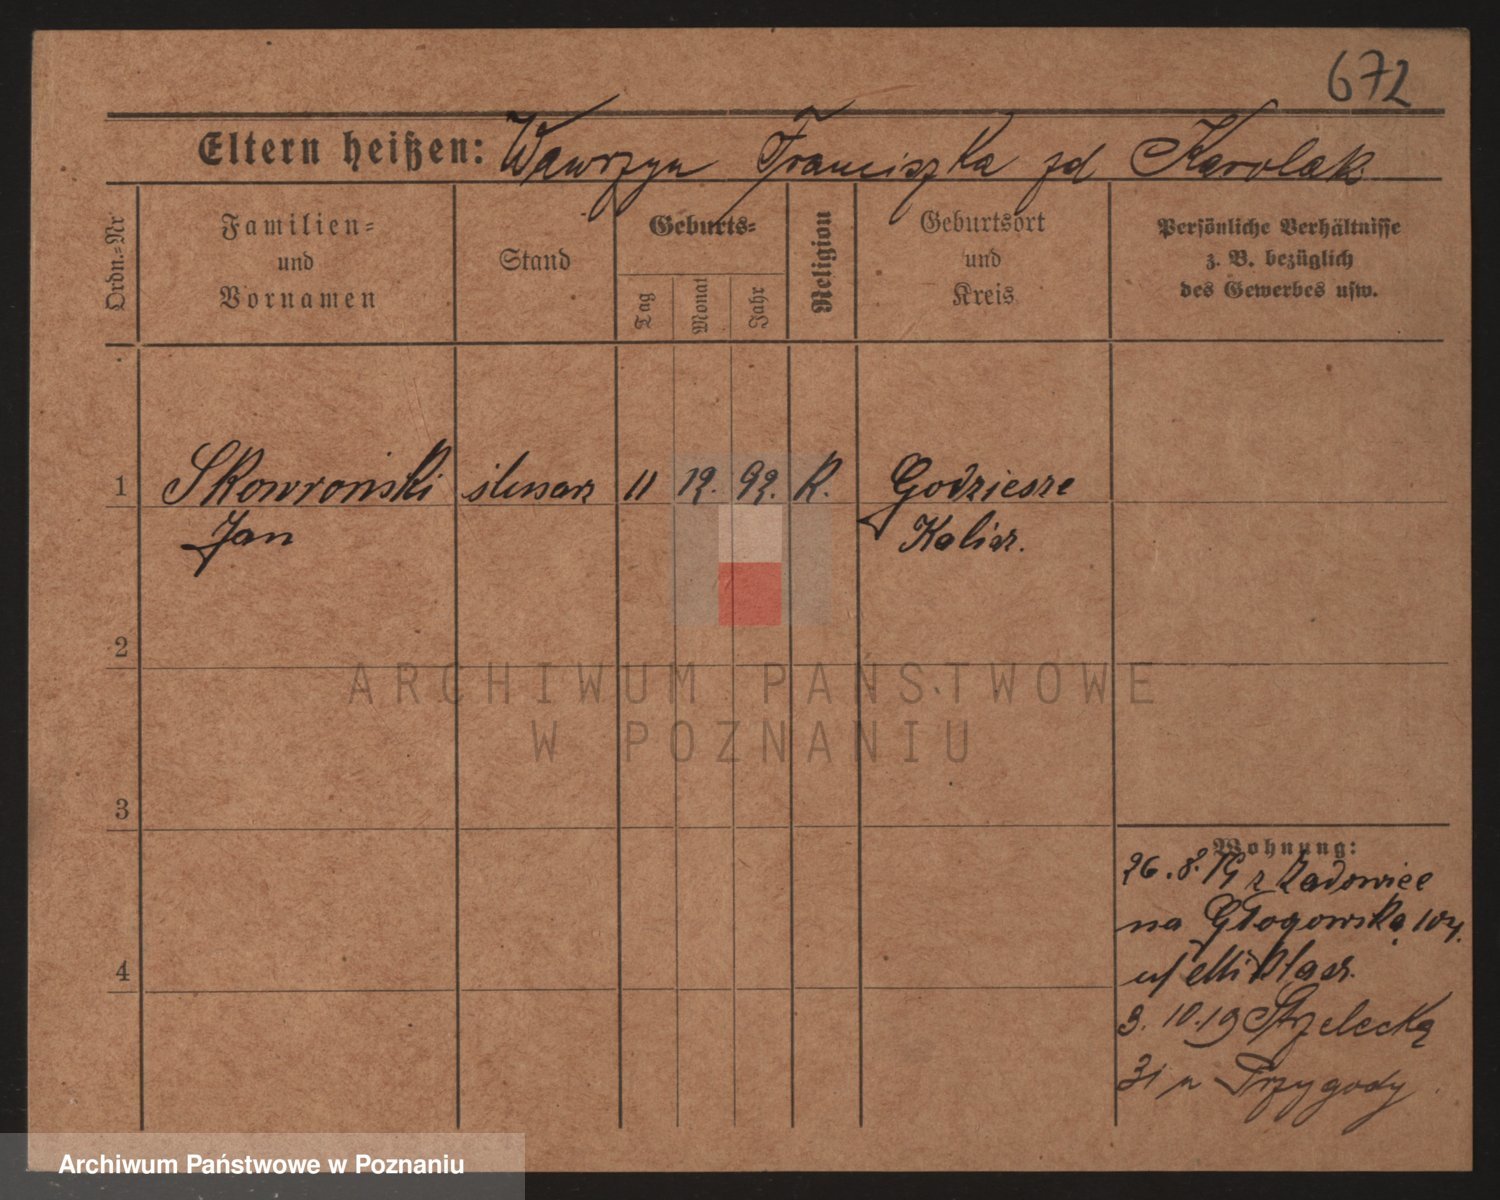 672
Eltern heißen: Wawrzyn Franciszka zd Karolak
Ordn.=Nr
Familien=
und
Vornamen
Stand
Geburts=
Tag
Monat
Jahr
Religion
Geburtsort
und
Kreis
Persönliche Verhältnisse
z. B. bezüglich
des Gewerbes usw.
1 Skowroński ślusarz 11 12. 92. K. Godziesze
Jan Kalisz.
2
3
4
Wohnung:
26. 8. 19 z
na Głogowską 104.
3. 10. 19 Strzelecką
31 Przygody
ARCHIWUM PAŃSTWOWE
W POZNANIU
Archiwum Państwowe w Poznaniu